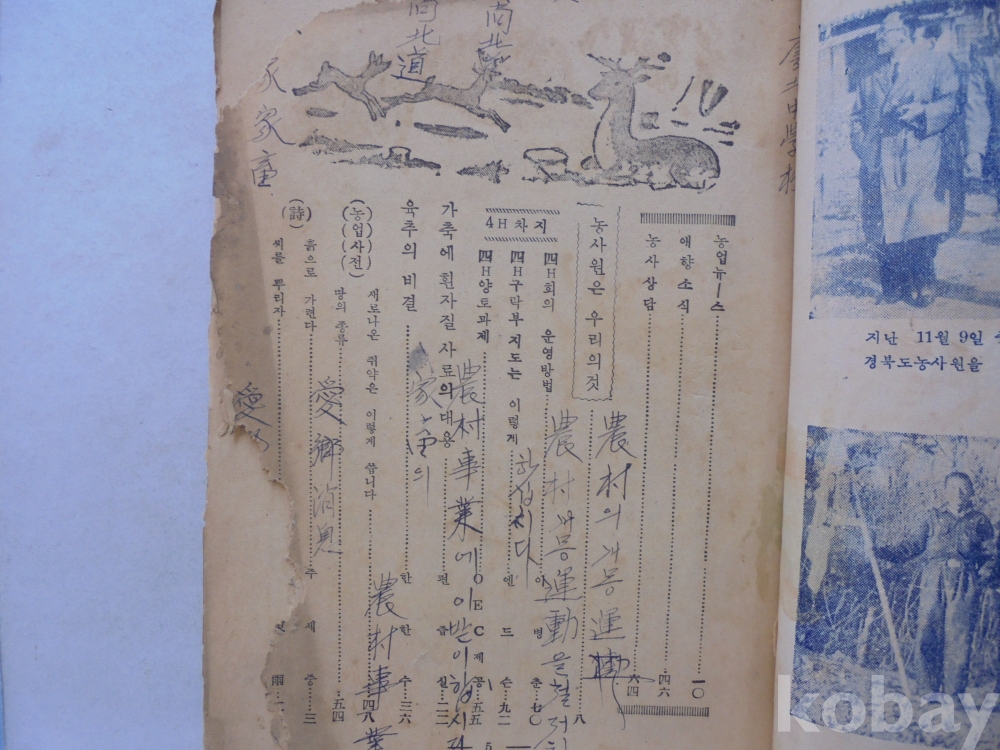 농업뉴ー스 一〇
애향소식 四六
농사상담 六四
농사원은 우리의것 八
지차 4H
四H회의 운영방법 이병춘 七〇
四H구락부지도는 이렇게 엔드슨 九二
四H양토과제 OEC제공 五五
가축에 흰자질 사료의대용 편즙실 二二
육추의 비결 한한수 三六
(농업사전)
새로나온 쥐약은 이렇게 씁니다 四八
땅의 종류 五四
(詩)
흙으로 가련다 주세중 三
씨를 뿌리자
農村의 개몽運
農村개몽運動을철저히
하십시다
農村事業에 이받이합시다
農村事業
愛鄕消息
家畜의
北道
지난 11월 9일
경북도농사원을
kobay